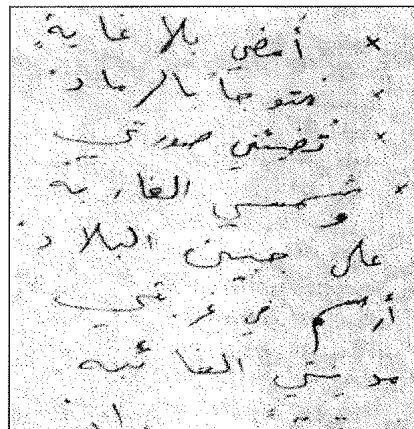 × أمضي بلا غاية
× متوجاً بالرماد
× تضيئني صورتي
× و شمسي الغاربة
على جبين البلاد
أرسم في غربتي
مدينتي الغائبة